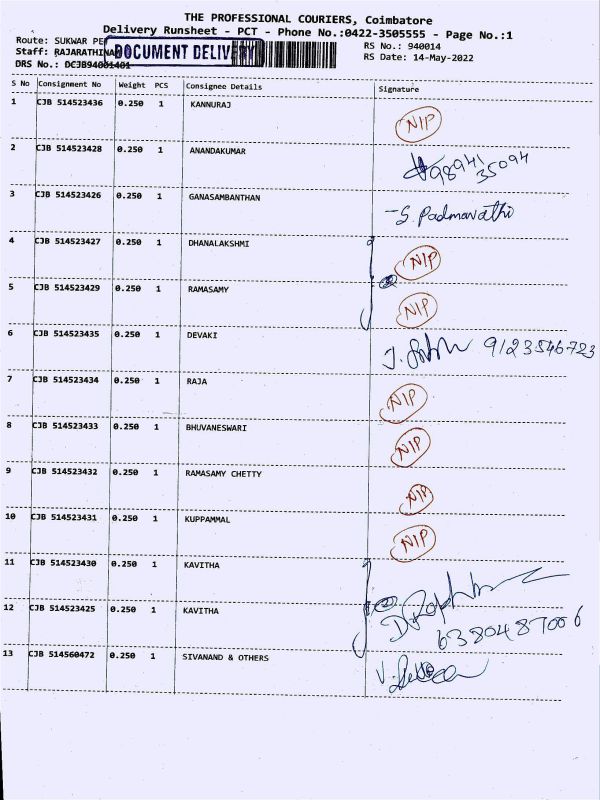 THE PROFESSIONAL COURIERS, Coimbatore
Delivery Runsheet - PCT - Phone No.:0422-3505555 - Page No.:1
Route: SUKWAR PE
DOCUMENT DELIVERY
RS No.: 940014
Staff: RAJARATHINA
RS Date: 14-May-2022
DRS No.: DCJB94001401
S No Consignment No Weight PCS Consignee Details Signature
1 CJB 514523436 0.250 1 KANNURAJ NIP
2 CJB 514523428 0.250 1 ANANDAKUMAR 98941 35094
3 CJB 514523426 0.250 1 GANASAMBANTHAN S. Padmavathi
4 CJB 514523427 0.250 1 DHANALAKSHMI NIP
5 CJB 514523429 0.250 1 RAMASAMY NIP
6 CJB 514523435 0.250 1 DEVAKI 9123546723
7 CJB 514523434 0.250 1 RAJA NIP
8 CJB 514523433 0.250 1 BHUVANESWARI NIP
9 CJB 514523432 0.250 1 RAMASAMY CHETTY NIP
10 CJB 514523431 0.250 1 KUPPAMMAL NIP
11 CJB 514523430 0.250 1 KAVITHA
12 CJB 514523425 0.250 1 KAVITHA 6380487006
13 CJB 514560472 0.250 1 SIVANAND & OTHERS